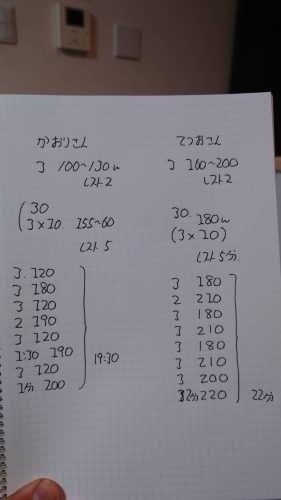 かおりさん
3 100~130w
レスト2
30
3×10 155~60
レスト5
3. 120
3 180
3 120
2 190
3 120
1:30 190
3 120
1分 200
19:30
てつおさん
3 160~200
レスト2
30. 180w
(3×10)
レスト5分
3 180
2 210
3 180
3 210
3 180
3 210
3 200
2分220
22分